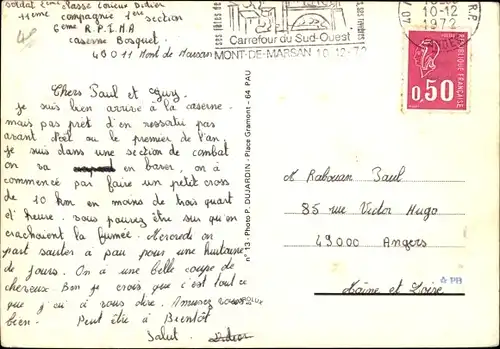 soldat 2ème classe Didier
11ème compagnie 1ère section
6ème R.P.I.MA
caserne Bosquet
40011 Mont de Marsan
Carrefour du Sud-Ouest
MONT-DE-MARSAN 10.12.72
40
10-12
1972
R.P.
REPUBLIQUE FRANÇAISE
0,50
Chers Paul et
Je suis bien arrivé à la caserne.
mais pas prêt d'en ressortir pas
avant Noël ou le premier de l'an.
je suis dans une section de combat
on va en baver, on a
commencé par faire un petit cross
de 10 km en moins de trois quart
d'heure. vous pouvez être sur qu'on
crachaient la fumée. Mercredi on
part sauter à pau pour une huitaine
de jours. On a une belle coupe de
cheveux Bon je crois que c'est tout ce
que j'ai à vous dire. Amusez vous
bien. Peut être à Bientôt
Salut. Didier
n° 13 - Photo P. DUJARDIN - Place Gramont - 64 PAU
M Rabouan Paul
85 rue Victor Hugo
49000 Angers
Maine et Loire
PB